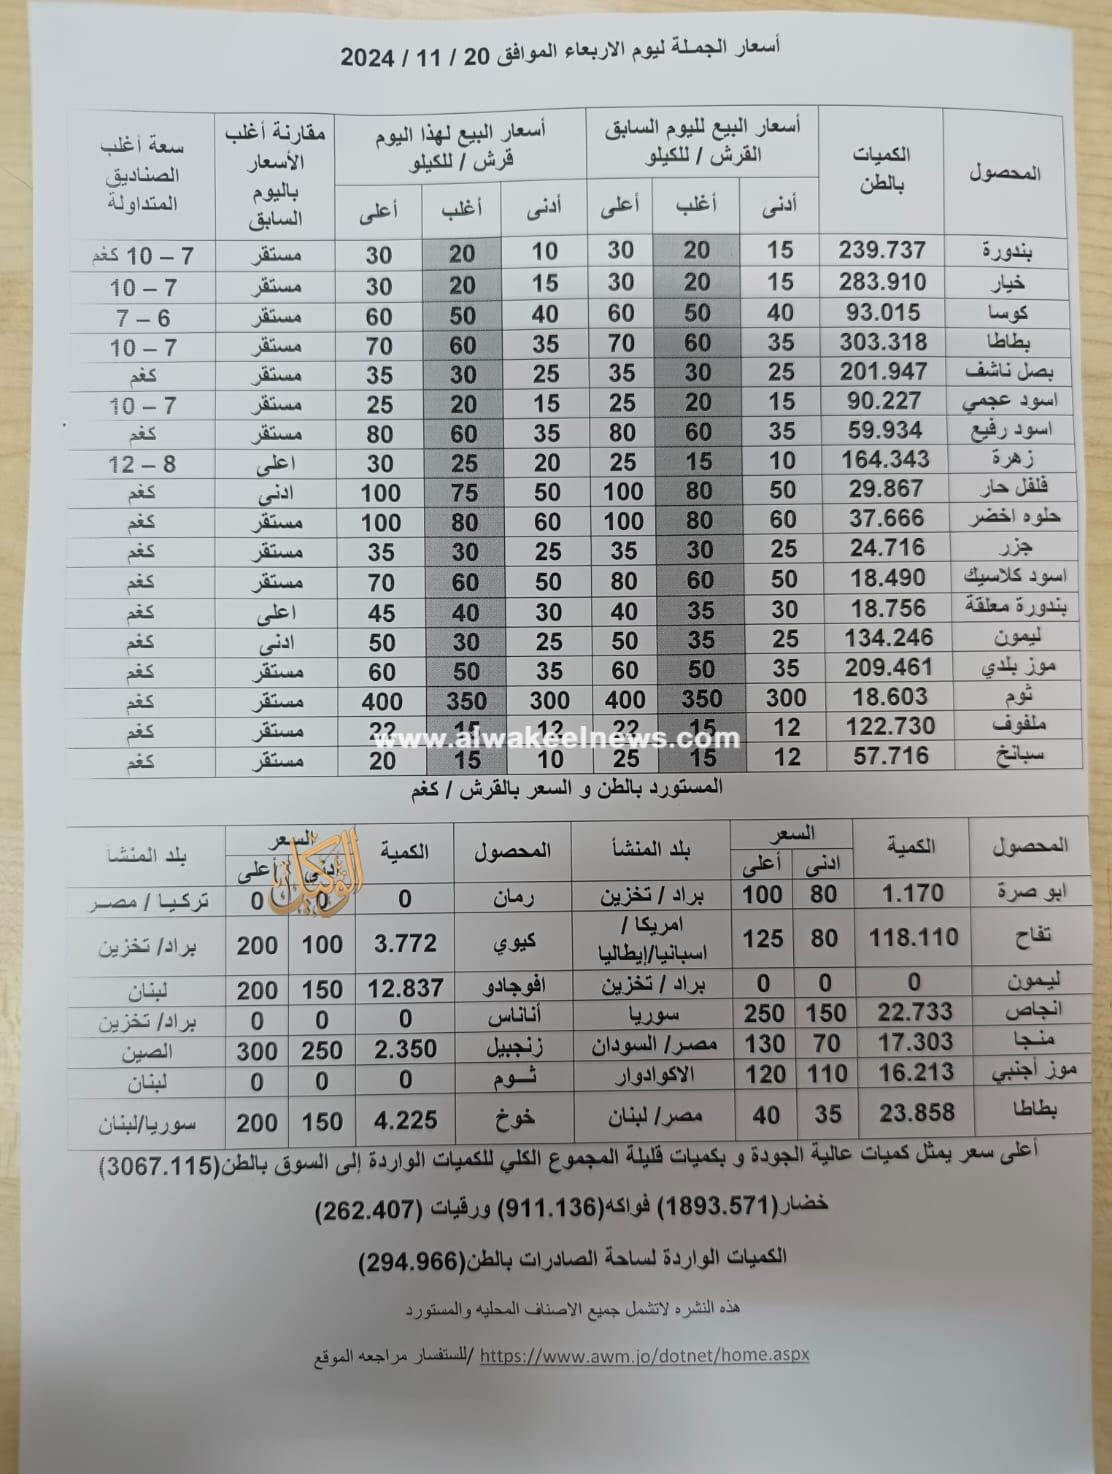 أسعار الجملة ليوم الاربعاء الموافق 20 / 11 / 2024
المحصول الكميات بالطن أسعار البيع لليوم السابق القرش / للكيلو أسعار البيع لهذا اليوم قرش / للكيلو مقارنة أغلب الأسعار باليوم السابق سعة أغلب الصناديق المتداولة
أدنى أغلب أعلى أدنى أغلب أعلى
بندورة 239.737 15 20 30 10 20 30 مستقر 7 – 10 كغم
خيار 283.910 15 20 30 15 20 30 مستقر 7 – 10
كوسا 93.015 40 50 60 40 50 60 مستقر 6 – 7
بطاطا 303.318 35 60 70 35 60 70 مستقر 7 – 10
بصل ناشف 201.947 25 30 35 25 30 35 مستقر كغم
اسود عجمي 90.227 15 20 25 15 20 25 مستقر 7 – 10
اسود رفيع 59.934 35 60 80 35 60 80 مستقر كغم
زهرة 164.343 10 15 25 20 25 30 اعلى 8 – 12
فلفل حار 29.867 50 80 100 50 75 100 ادنى كغم
حلوه اخضر 37.666 60 80 100 60 80 100 مستقر كغم
جزر 24.716 25 30 35 25 30 35 مستقر كغم
اسود كلاسيك 18.490 50 60 80 50 60 70 مستقر كغم
بندورة معلقة 18.756 30 35 40 30 40 45 اعلى كغم
ليمون 134.246 25 35 50 25 30 50 ادنى كغم
موز بلدي 209.461 35 50 60 35 50 60 مستقر كغم
ثوم 18.603 300 350 400 300 350 400 مستقر كغم
ملفوف 122.730 12 15 22 12 15 22 مستقر كغم
www.alwakeelnews.com
سبانخ 57.716 12 15 25 10 15 20 مستقر كغم
المستورد بالطن و السعر بالقرش / كغم
المحصول الكمية السعر بلد المنشأ المحصول الكمية السعر بلد المنشأ
ادنى أعلى ادنى أعلى
الوكيل
ابو صرة 1.170 80 100 براد / تخزين رمان 0 0 0 تركيا / مصر
تفاح 118.110 80 125 امريكا / اسبانيا/إيطاليا كيوي 3.772 100 200 براد/ تخزين
ليمون 0 0 0 براد / تخزين افوجادو 12.837 150 200 لبنان
انجاص 22.733 150 250 سوريا أناناس 0 0 0 براد/ تخزين
منجا 17.303 70 130 مصر/ السودان زنجبيل 2.350 250 300 الصين
موز أجنبي 16.213 110 120 الاكوادوار ثوم 0 0 0 لبنان
بطاطا 23.858 35 40 مصر/ لبنان خوخ 4.225 150 200 سوريا/لبنان
أعلى سعر يمثل كميات عالية الجودة و بكميات قليلة المجموع الكلي للكميات الواردة إلى السوق بالطن(3067.115)
خضار(1893.571) فواكه(911.136) ورقيات (262.407)
الكميات الواردة لساحة الصادرات بالطن(294.966)
هذه النشره لاتشمل جميع الاصناف المحليه والمستورد
https://www.awm.jo/dotnet/home.aspx /للستفسار مراجعه الموقع